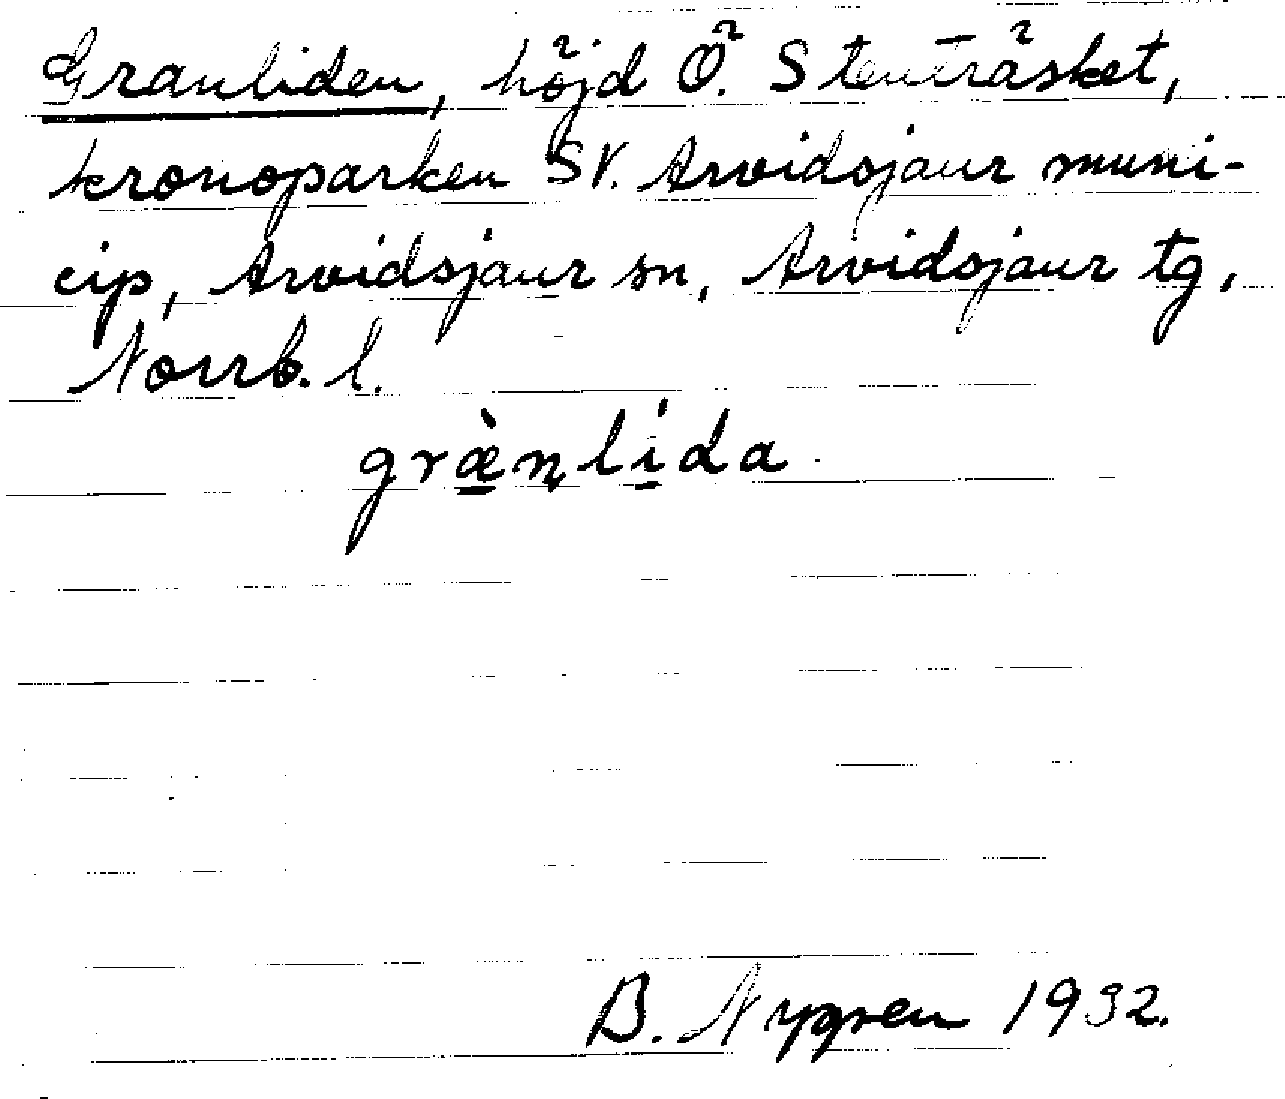 Granliden, höjd Ö. Stenträsket,
kronoparken SV. Arvidsjaur muni-
cip, Arvidsjaur sn, Arvidsjaur tg,
Norrb. l.
græ̠̀ṇli̠da.
B. Nygren 1932.